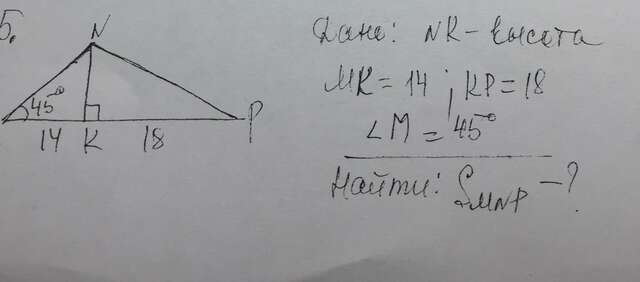 5.
N
45°
14 K 18 P
Дано: NK - высота
MK = 14 ; KP = 18
∠M = 45°
Найти: S MNP - ?